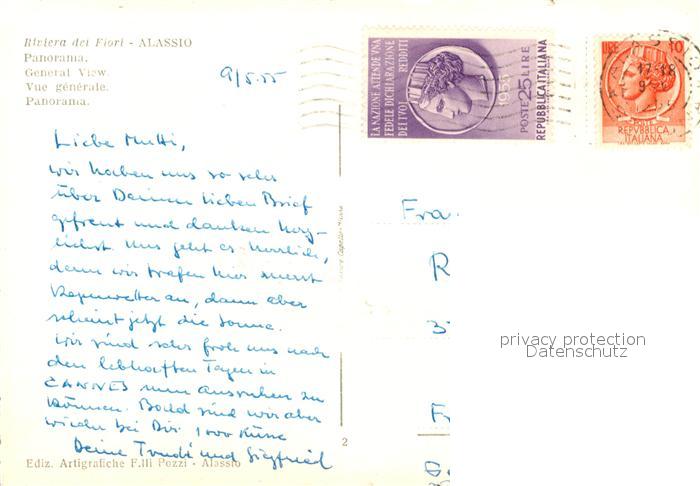 Riviera dei Fiori - ALASSIO
Panorama.
General View.
Vue générale.
Panorama.
9/5.55
LA NAZIONE ATTENDE UNA
FEDELE DICHIARAZIONE
DEI TUOI REDDITI
1955
POSTE 25 LIRE
REPVBBLICA ITALIANA
LIRE 10
17-18
POSTE
REPVBBLICA
ITALIANA
Liebe Mutti,
wir haben uns so sehr
über Deinen lieben Brief
gefreut und danken herz-
lichst. Uns geht es herrlich,
denn wir trafen hier zuerst
Regenwetter an, dann aber
scheint jetzt die Sonne.
Wir sind sehr froh uns nach
den lebhaften Tagen in
CANNES nun ausruhen zu
können. Bald sind wir aber
wieder bei Dir. 1000 Küsse
Deine Trudi und Siegfried
Fra
R
3
F
privacy protection
Datenschutz
2
Ediz. Artigrafiche F.lli Pozzi - Alassio